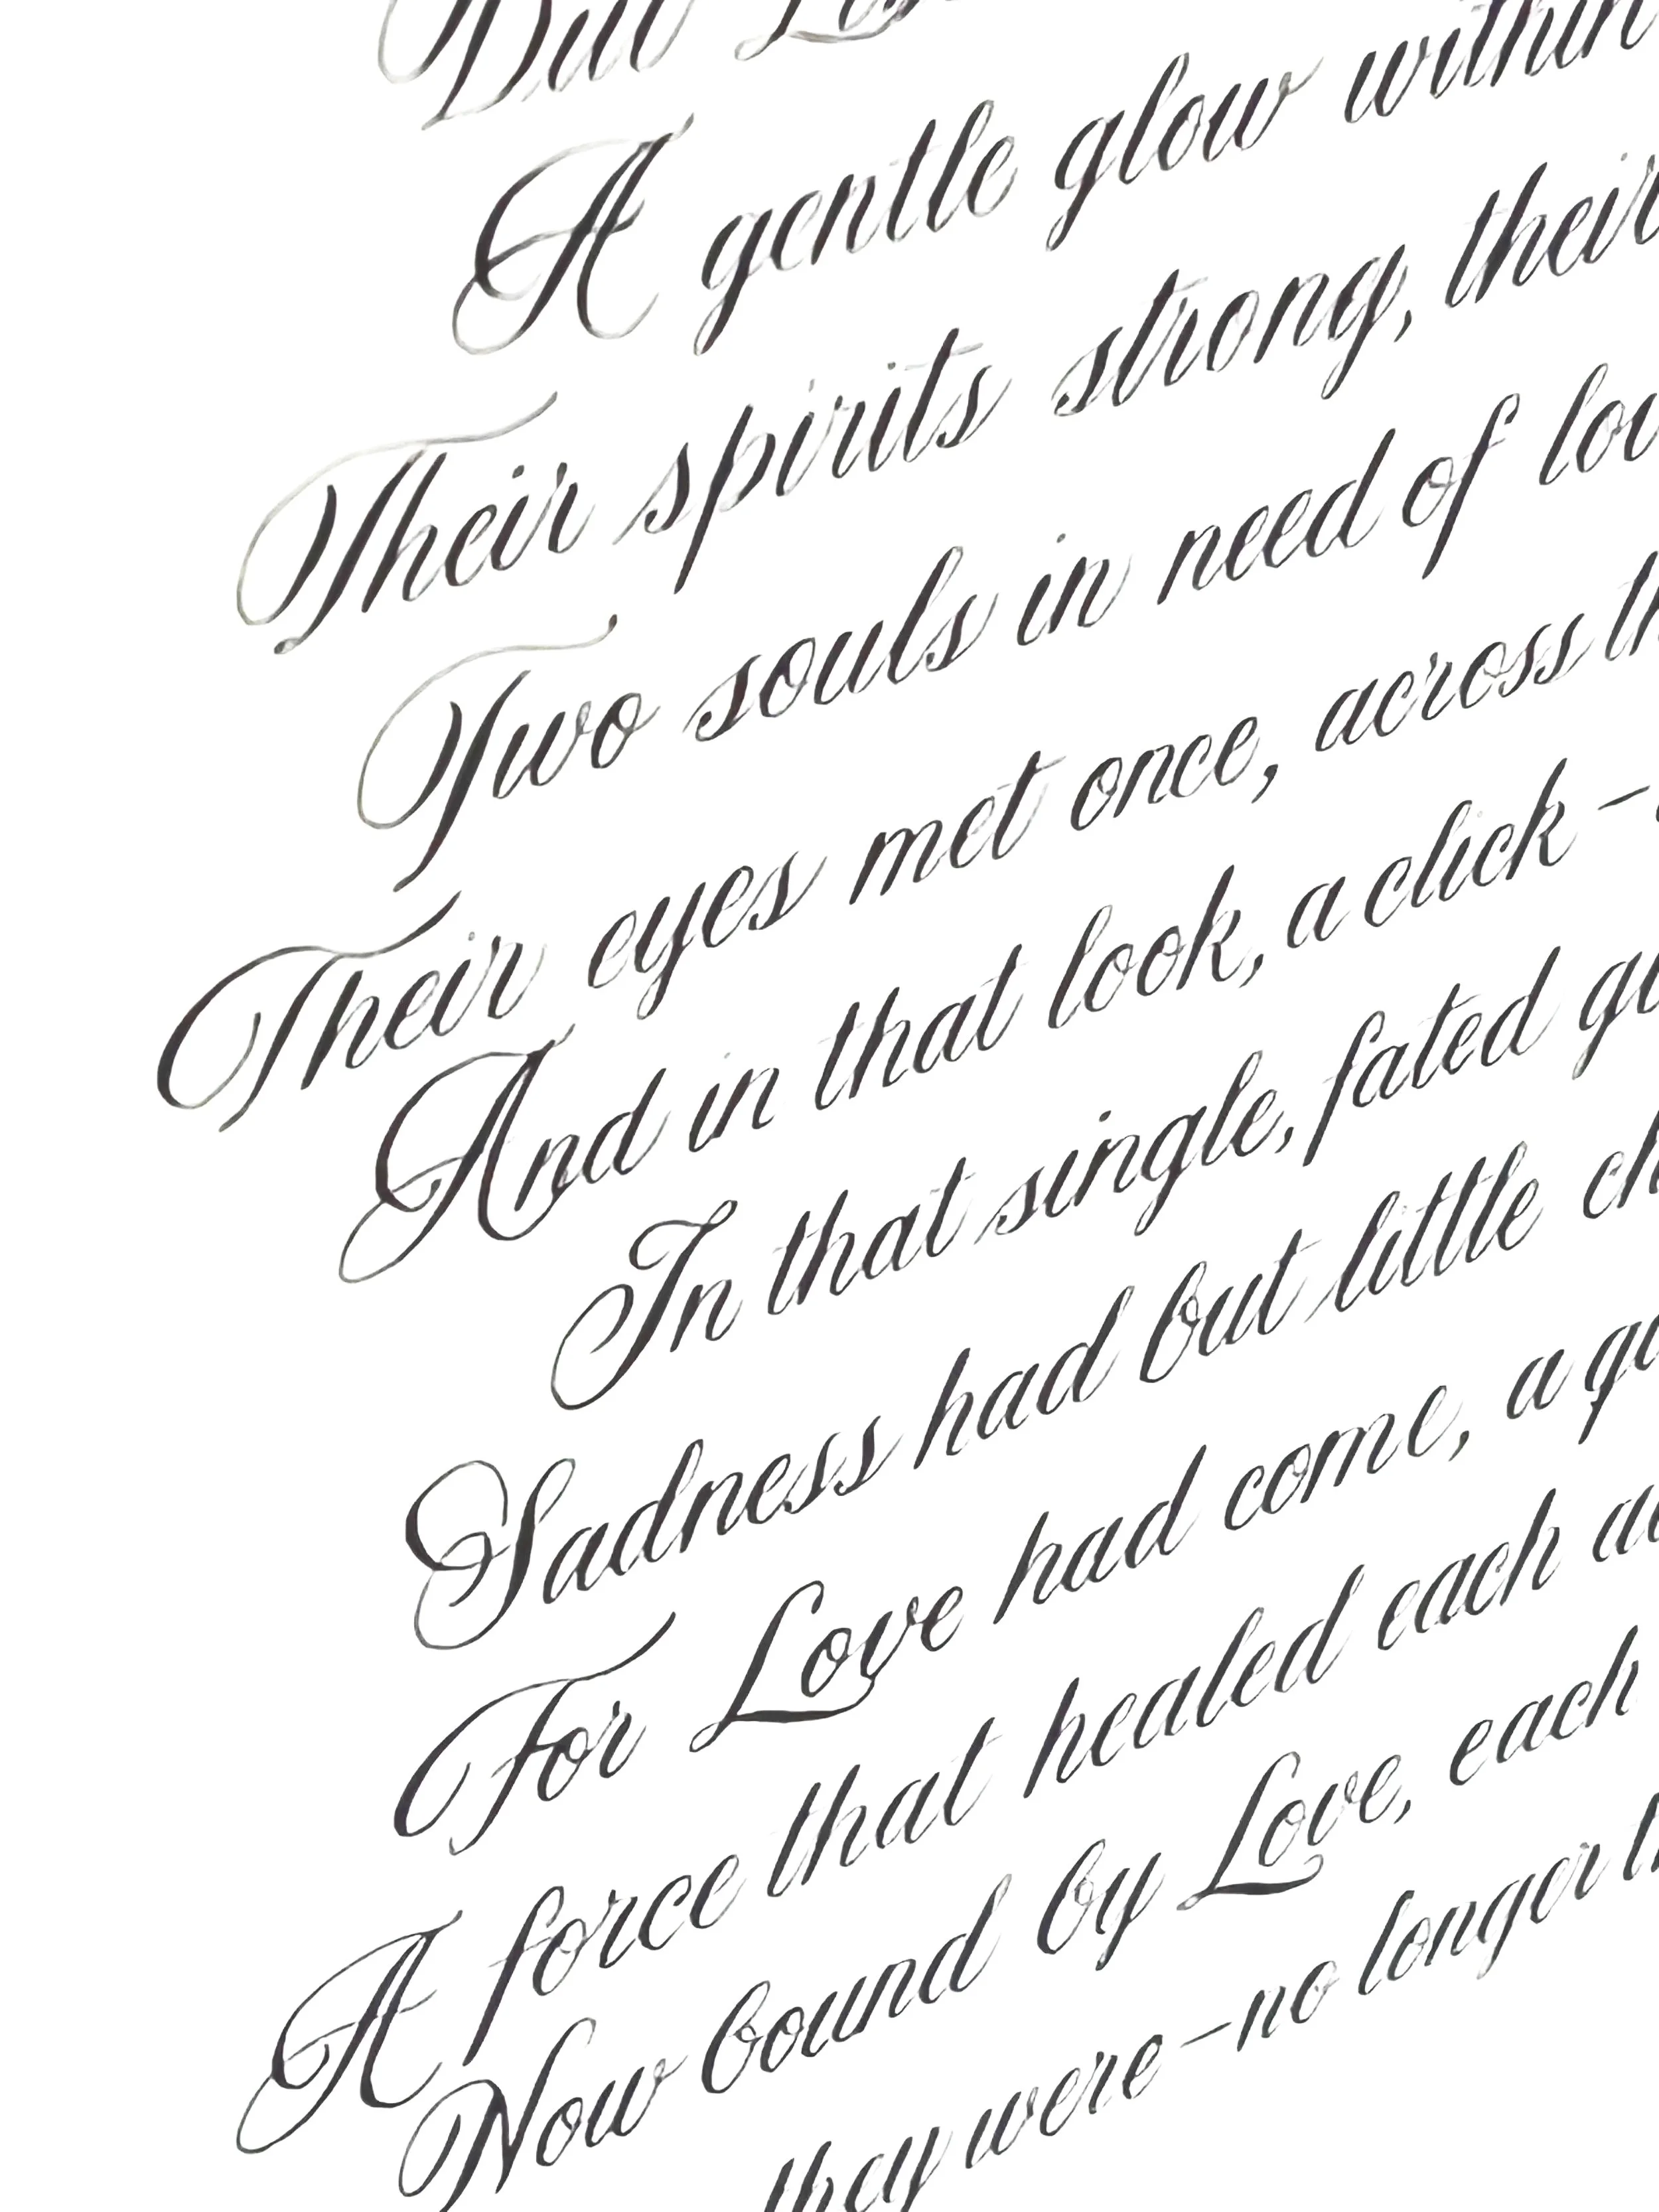 A gentle glow within
Their spirits strong, their
Two souls in need of
Their eyes met once, across
And in that look, a click –
In that single, fated
Sadness had but little
For Love had come, a
A force that healed each
Now bound by Love, each
they were – no longer